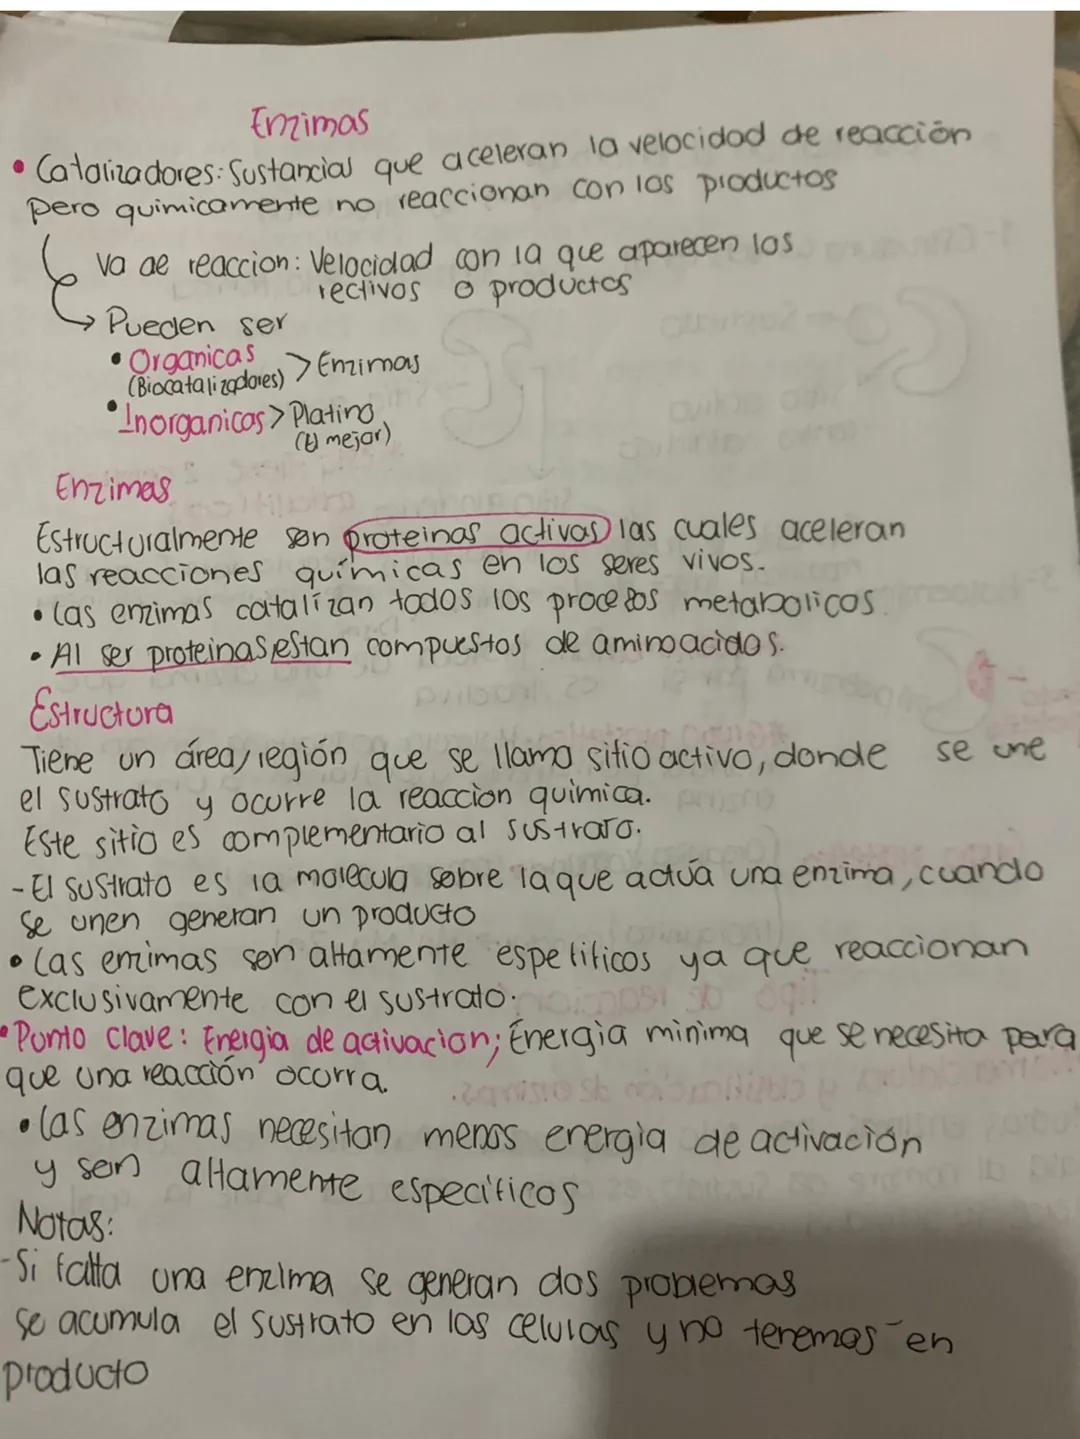 Enzimas
• Catalizadores: Sustancias que aceleran la velocidad de reacción
pero quimicamente no reaccionan con los productos
Va de reaccion: Velocidad con la que aparecen los
rectivos o productos
Pueden ser
• Organicas > Enzimas
(Biocatalizadores)
• Inorganicas > Platino
(El mejor)
Enzimas
Estructuralmente son proteinas activas las cuales aceleran
las reacciones químicas en los seres vivos.
• Las enzimas catalízan todos los procesos metabolicos
• Al ser proteinas estan compuestos de aminoacidos.
Estructura
Tiene un área/región que se llama sitio activo, donde se une
el sustrato y ocurre la reaccion quimica.
Este sitio es complementario al sustrato.
- El sustrato es la molecula sobre la que actúa una enzima, cuando
se unen generan un producto
• Las enzimas son altamente espetificos ya que reaccionan
exclusivamente con el sustrato.
• Punto clave: Energia de activacion; Energia minima que se necesita para
que una reacción ocurra.
• Las enzimas necesitan menos energia de activación
y son altamente especificos
Notas:
- Si falta una enzima se generan dos problemas
se acumula el sustrato en las celulas y no tenemos en
producto